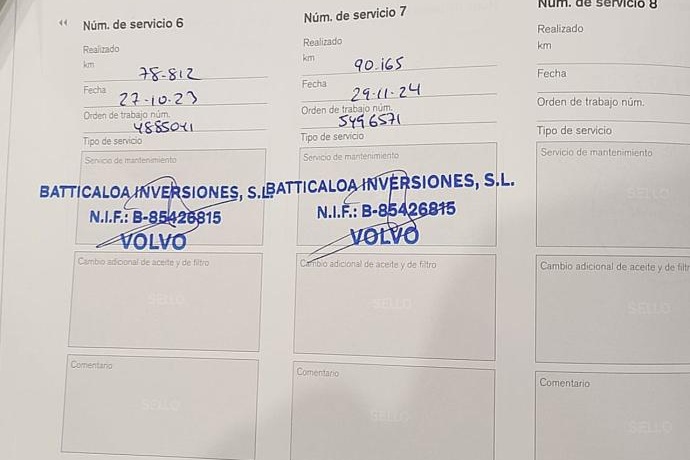 Núm. de servicio 6
Realizado
km
78-812
Fecha
27-10-23
Orden de trabajo núm.
4885041
Tipo de servicio
Servicio de mantenimiento
BATTICALOA INVERSIONES, S.L.
N.I.F.: B-85426815
VOLVO
Cambio adicional de aceite y de filtro
SELLO
Comentario
SELLO
Núm. de servicio 7
Realizado
km
90.165
Fecha
29-11-24
Orden de trabajo núm.
5496571
Tipo de servicio
Servicio de mantenimiento
BATTICALOA INVERSIONES, S.L.
N.I.F.: B-85426815
VOLVO
Cambio adicional de aceite y de filtro
SELLO
Comentario
SELLO
Núm. de servicio 8
Realizado
km
Fecha
Orden de trabajo núm.
Tipo de servicio
Servicio de mantenimiento
SELLO
Cambio adicional de aceite y de filtr
SELLO
Comentario
SELLO